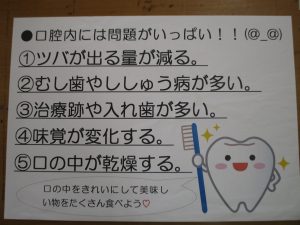 ●口腔内には問題がいっぱい！！(@_@)
①ツバが出る量が減る。
②むし歯やししゅう病が多い。
③治療跡や入れ歯が多い。
④味覚が変化する。
⑤口の中が乾燥する。
口の中をきれいにして美味し
い物をたくさん食べよう♡